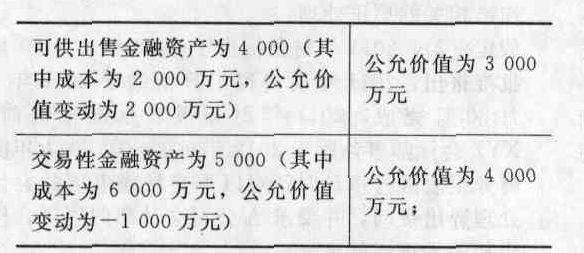 可供出售金融资产为 4 000（其
中成本为 2 000 万元，公允价
值变动为 2 000 万元）
公允价值为 3 000
万元
交易性金融资产为 5 000（其中
成本为 6 000 万元，公允价值
变动为－1 000 万元）
公允价值为 4 000
万元；